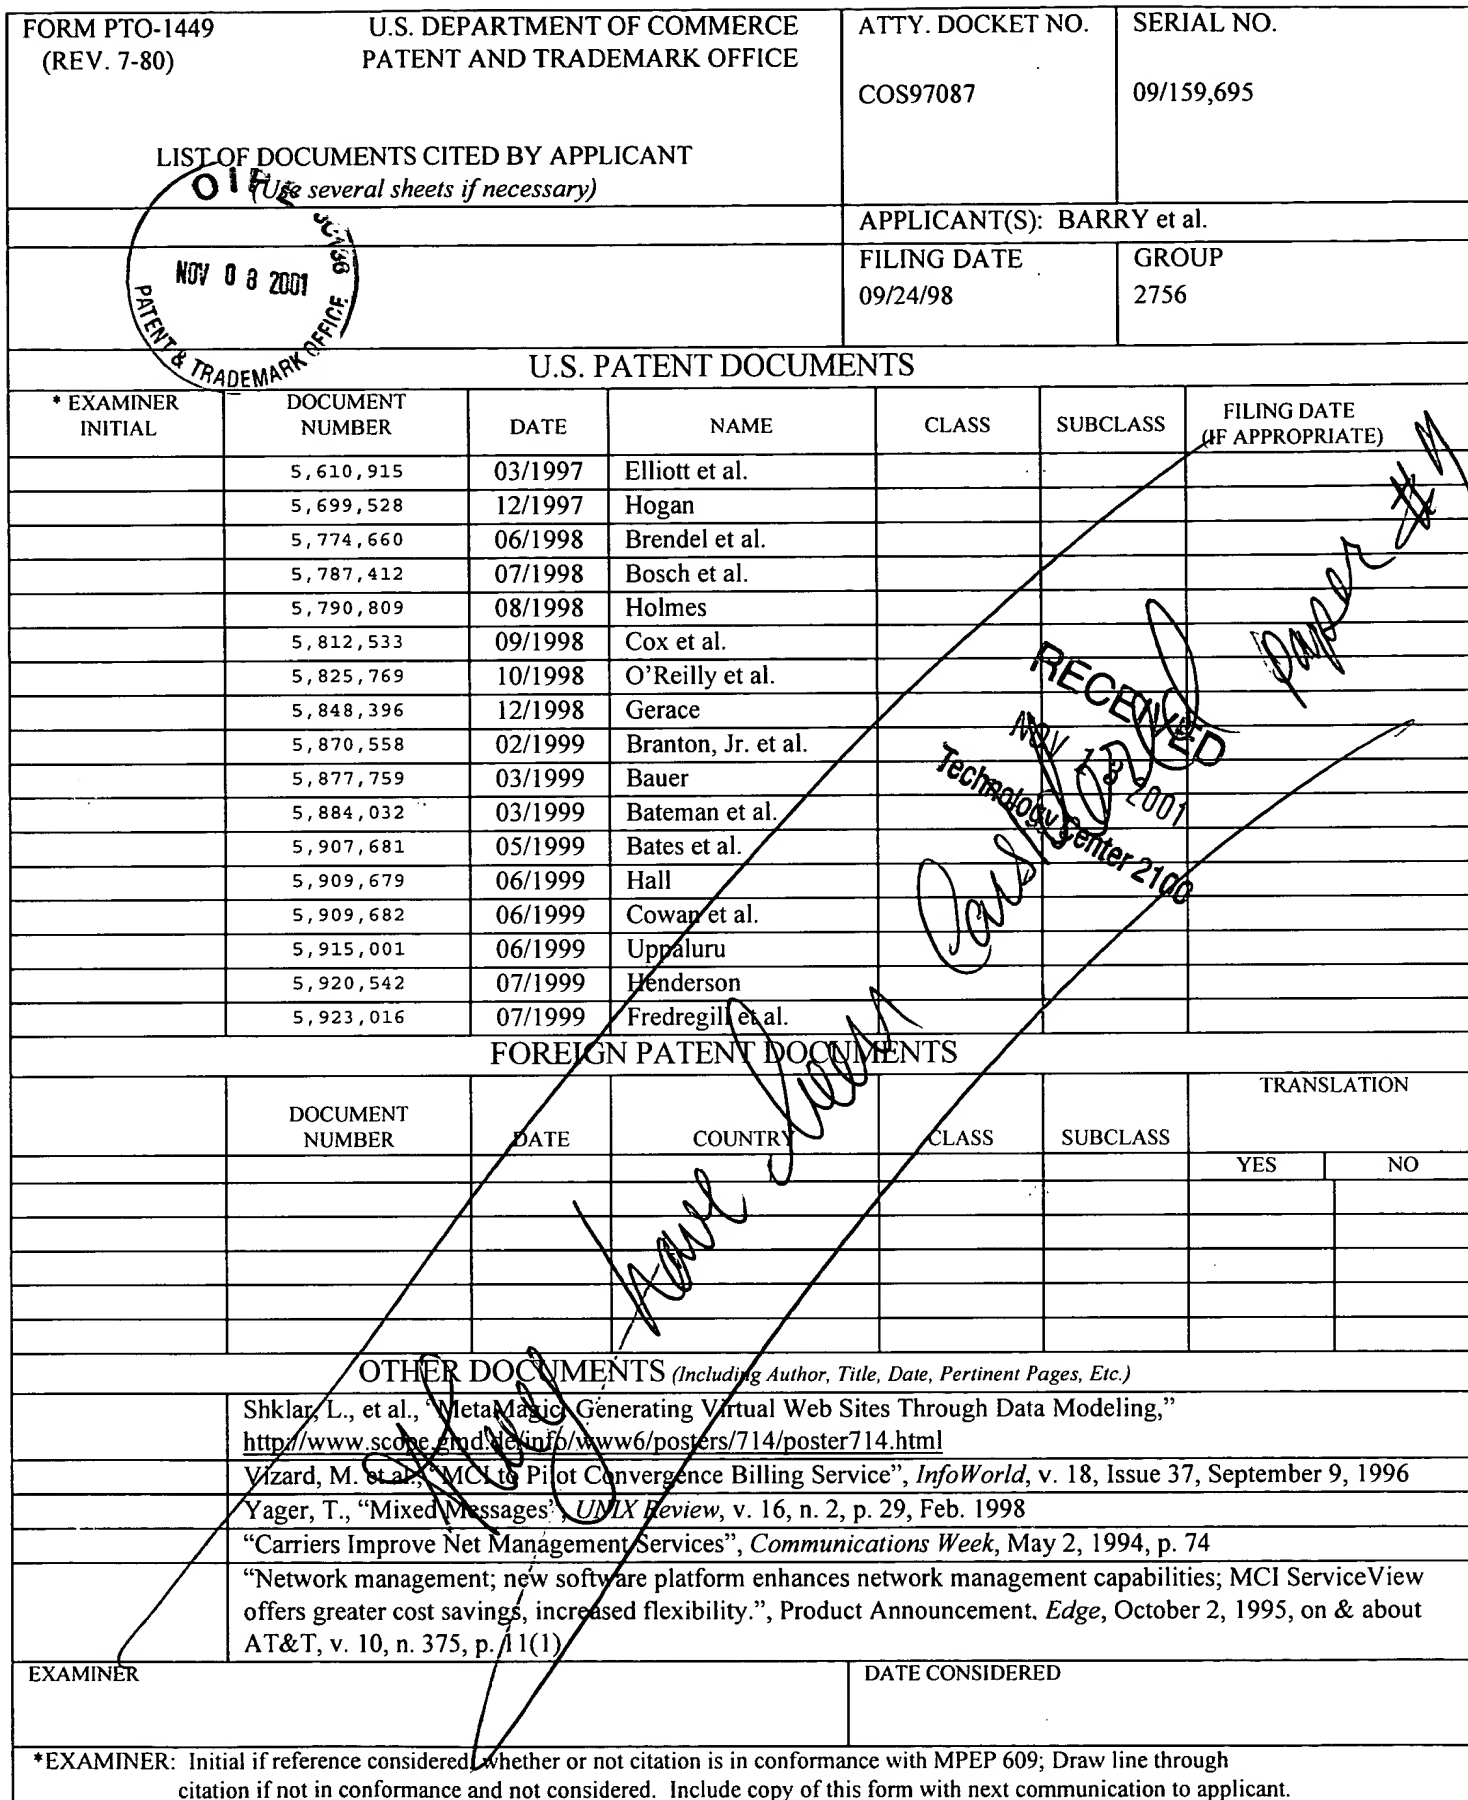 FORM PTO-1449 U.S. DEPARTMENT OF COMMERCE ATTY. DOCKET NO. SERIAL NO.
(REV. 7-80) PATENT AND TRADEMARK OFFICE
COS97087 09/159,695
LIST OF DOCUMENTS CITED BY APPLICANT
(Use several sheets if necessary)
OIPE
NOV 08 2001
PATENT & TRADEMARK OFFICE
APPLICANT(S): BARRY et al.
FILING DATE GROUP
09/24/98 2756
U.S. PATENT DOCUMENTS
* EXAMINER INITIAL DOCUMENT NUMBER DATE NAME CLASS SUBCLASS FILING DATE (IF APPROPRIATE)
5,610,915 03/1997 Elliott et al.
5,699,528 12/1997 Hogan
5,774,660 06/1998 Brendel et al.
5,787,412 07/1998 Bosch et al.
5,790,809 08/1998 Holmes
5,812,533 09/1998 Cox et al.
5,825,769 10/1998 O'Reilly et al.
5,848,396 12/1998 Gerace
5,870,558 02/1999 Branton, Jr. et al.
5,877,759 03/1999 Bauer
5,884,032 03/1999 Bateman et al.
5,907,681 05/1999 Bates et al.
5,909,679 06/1999 Hall
5,909,682 06/1999 Cowan et al.
5,915,001 06/1999 Uppaluru
5,920,542 07/1999 Henderson
5,923,016 07/1999 Fredregill et al.
RECEIVED
NOV 13 2001
Technology Center 2100
have been
paper #
FOREIGN PATENT DOCUMENTS
DOCUMENT NUMBER DATE COUNTRY CLASS SUBCLASS TRANSLATION
YES NO
OTHER DOCUMENTS (Including Author, Title, Date, Pertinent Pages, Etc.)
Shklar, L., et al., "MetaMagic: Generating Virtual Web Sites Through Data Modeling,"
http://www.scope.gmd.de/info/www6/posters/714/poster714.html
Vizard, M. et al., "MCI to Pilot Convergence Billing Service", InfoWorld, v. 18, Issue 37, September 9, 1996
Yager, T., "Mixed Messages", UNIX Review, v. 16, n. 2, p. 29, Feb. 1998
"Carriers Improve Net Management Services", Communications Week, May 2, 1994, p. 74
"Network management; new software platform enhances network management capabilities; MCI ServiceView
offers greater cost savings, increased flexibility.", Product Announcement. Edge, October 2, 1995, on & about
AT&T, v. 10, n. 375, p. 11(1)
EXAMINER DATE CONSIDERED
*EXAMINER: Initial if reference considered, whether or not citation is in conformance with MPEP 609; Draw line through
citation if not in conformance and not considered. Include copy of this form with next communication to applicant.